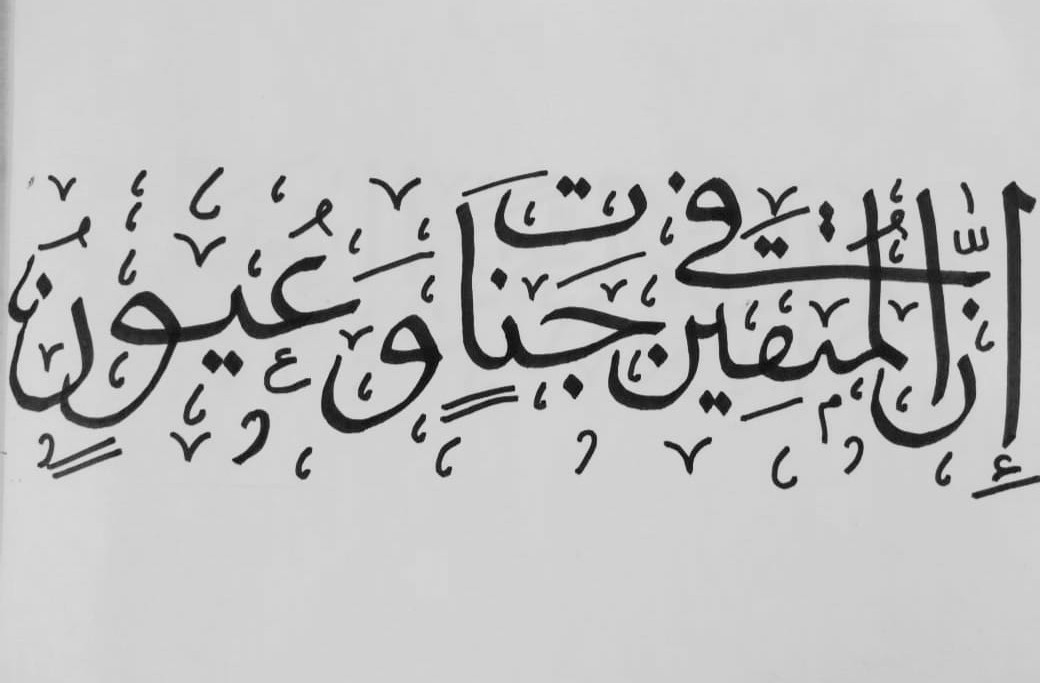 إِنَّ الْمُتَّقِينَ فِي جَنَّاتٍ وَعُيُونٍ